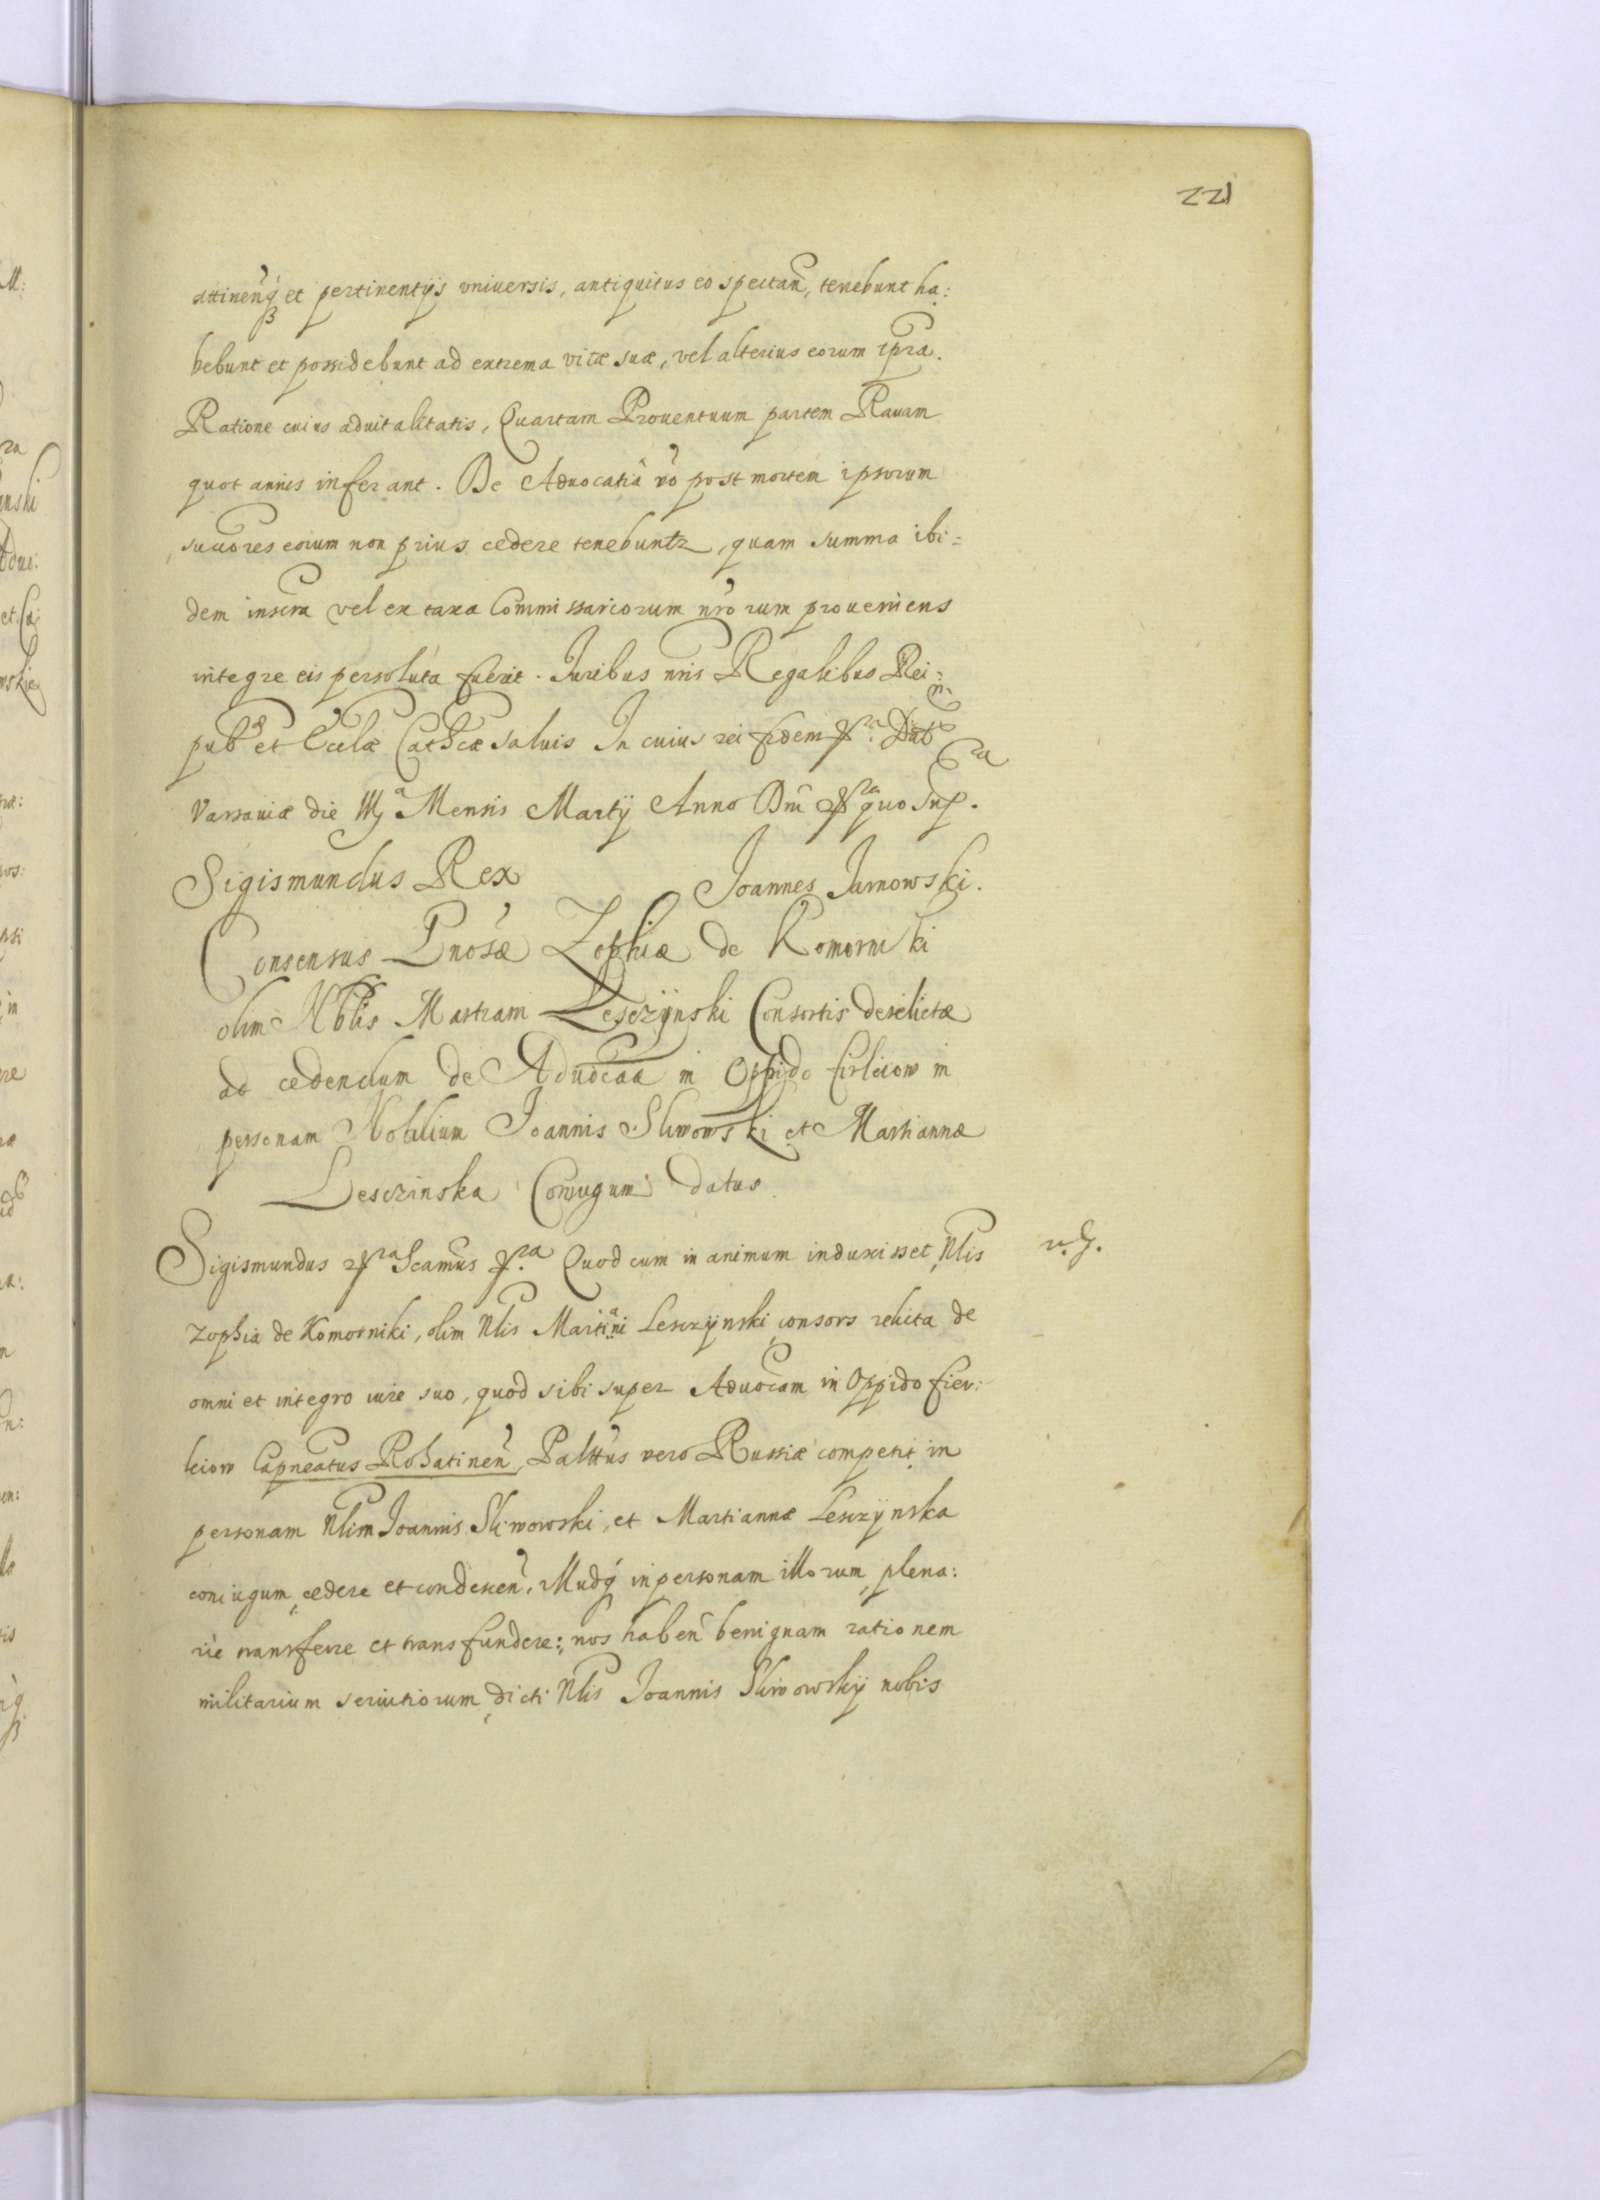 221
attinen̄q́ et pertinentijs vniuersis, antiquitus eo spectan̄, tenebunt ha:
bebunt et possidebunt ad extrema vitæ suæ, vel alterius eorum tp̄ra.
Ratione cuius aduitalitatis, Quartam Prouentuum partem Rauam
quot annis inferant. De Aduocatia v̄o post mortem ipsorum
succōres eorum non prius cedere tenebuntr, quam summa ibi=
dem inscr̄a vel ex taxa Commissariorum nr̄orum proueniens
integre eis persoluta fuerit. Iuribus nris Regalibus Rei:
pub et Eccl̄æ Cath̄cæ saluis In cuius rei fidem Dat
Varsauiæ die Mensis Martij Anno Dni quo sup.
Sigismundus Rex Joannes Jarnowski.
Consensus Gnosæ Zophiæ de Komorniki
olim Nblis Martiani Lesczÿnski Consortis derelictæ
ad cedendum de Aduocaa in Oppido Firleiow in
personam Nobilium Joannis Sliwowski et Martiannæ
Lesczinska Coniugum datus
Sigismundus ra Scamus ra Quod cum in animum induxisset Nlis
Zophia de Komorniki, olim Nlis Martiani Lesczÿnski consors relicta de
omni et integro iure suo, quod sibi super Aduoc̄am in Oppido Fier:
leiow Capneatus Rohatinen̄, Palttus vero Russiæ competit in
personam Nlim Joannis Sliwowski, et Martiannæ Lesczÿnska
coniugum cedere et condescen̄, illudq́ in personam illorum plena:
rie transferre et transfundere: nos haben̄ benignam rationem
militarium seruitiorum dicti Nlis Joannis Sliwowskÿ nobis